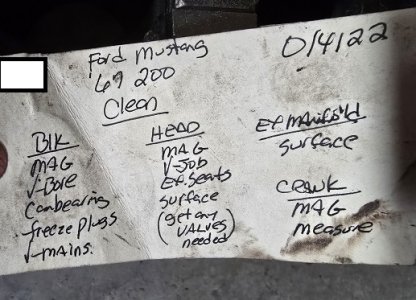 Ford Mustang
69 200
0/4/22
Clean
Blk
MAG
√-Bore
Cambearing
freeze plugs
√-mains.
HEAD
MAG
V-Job
Ex. Seats
surface
(get any
VALVES
needed)
Ex Manifold
surface
Crank
MAG
measure